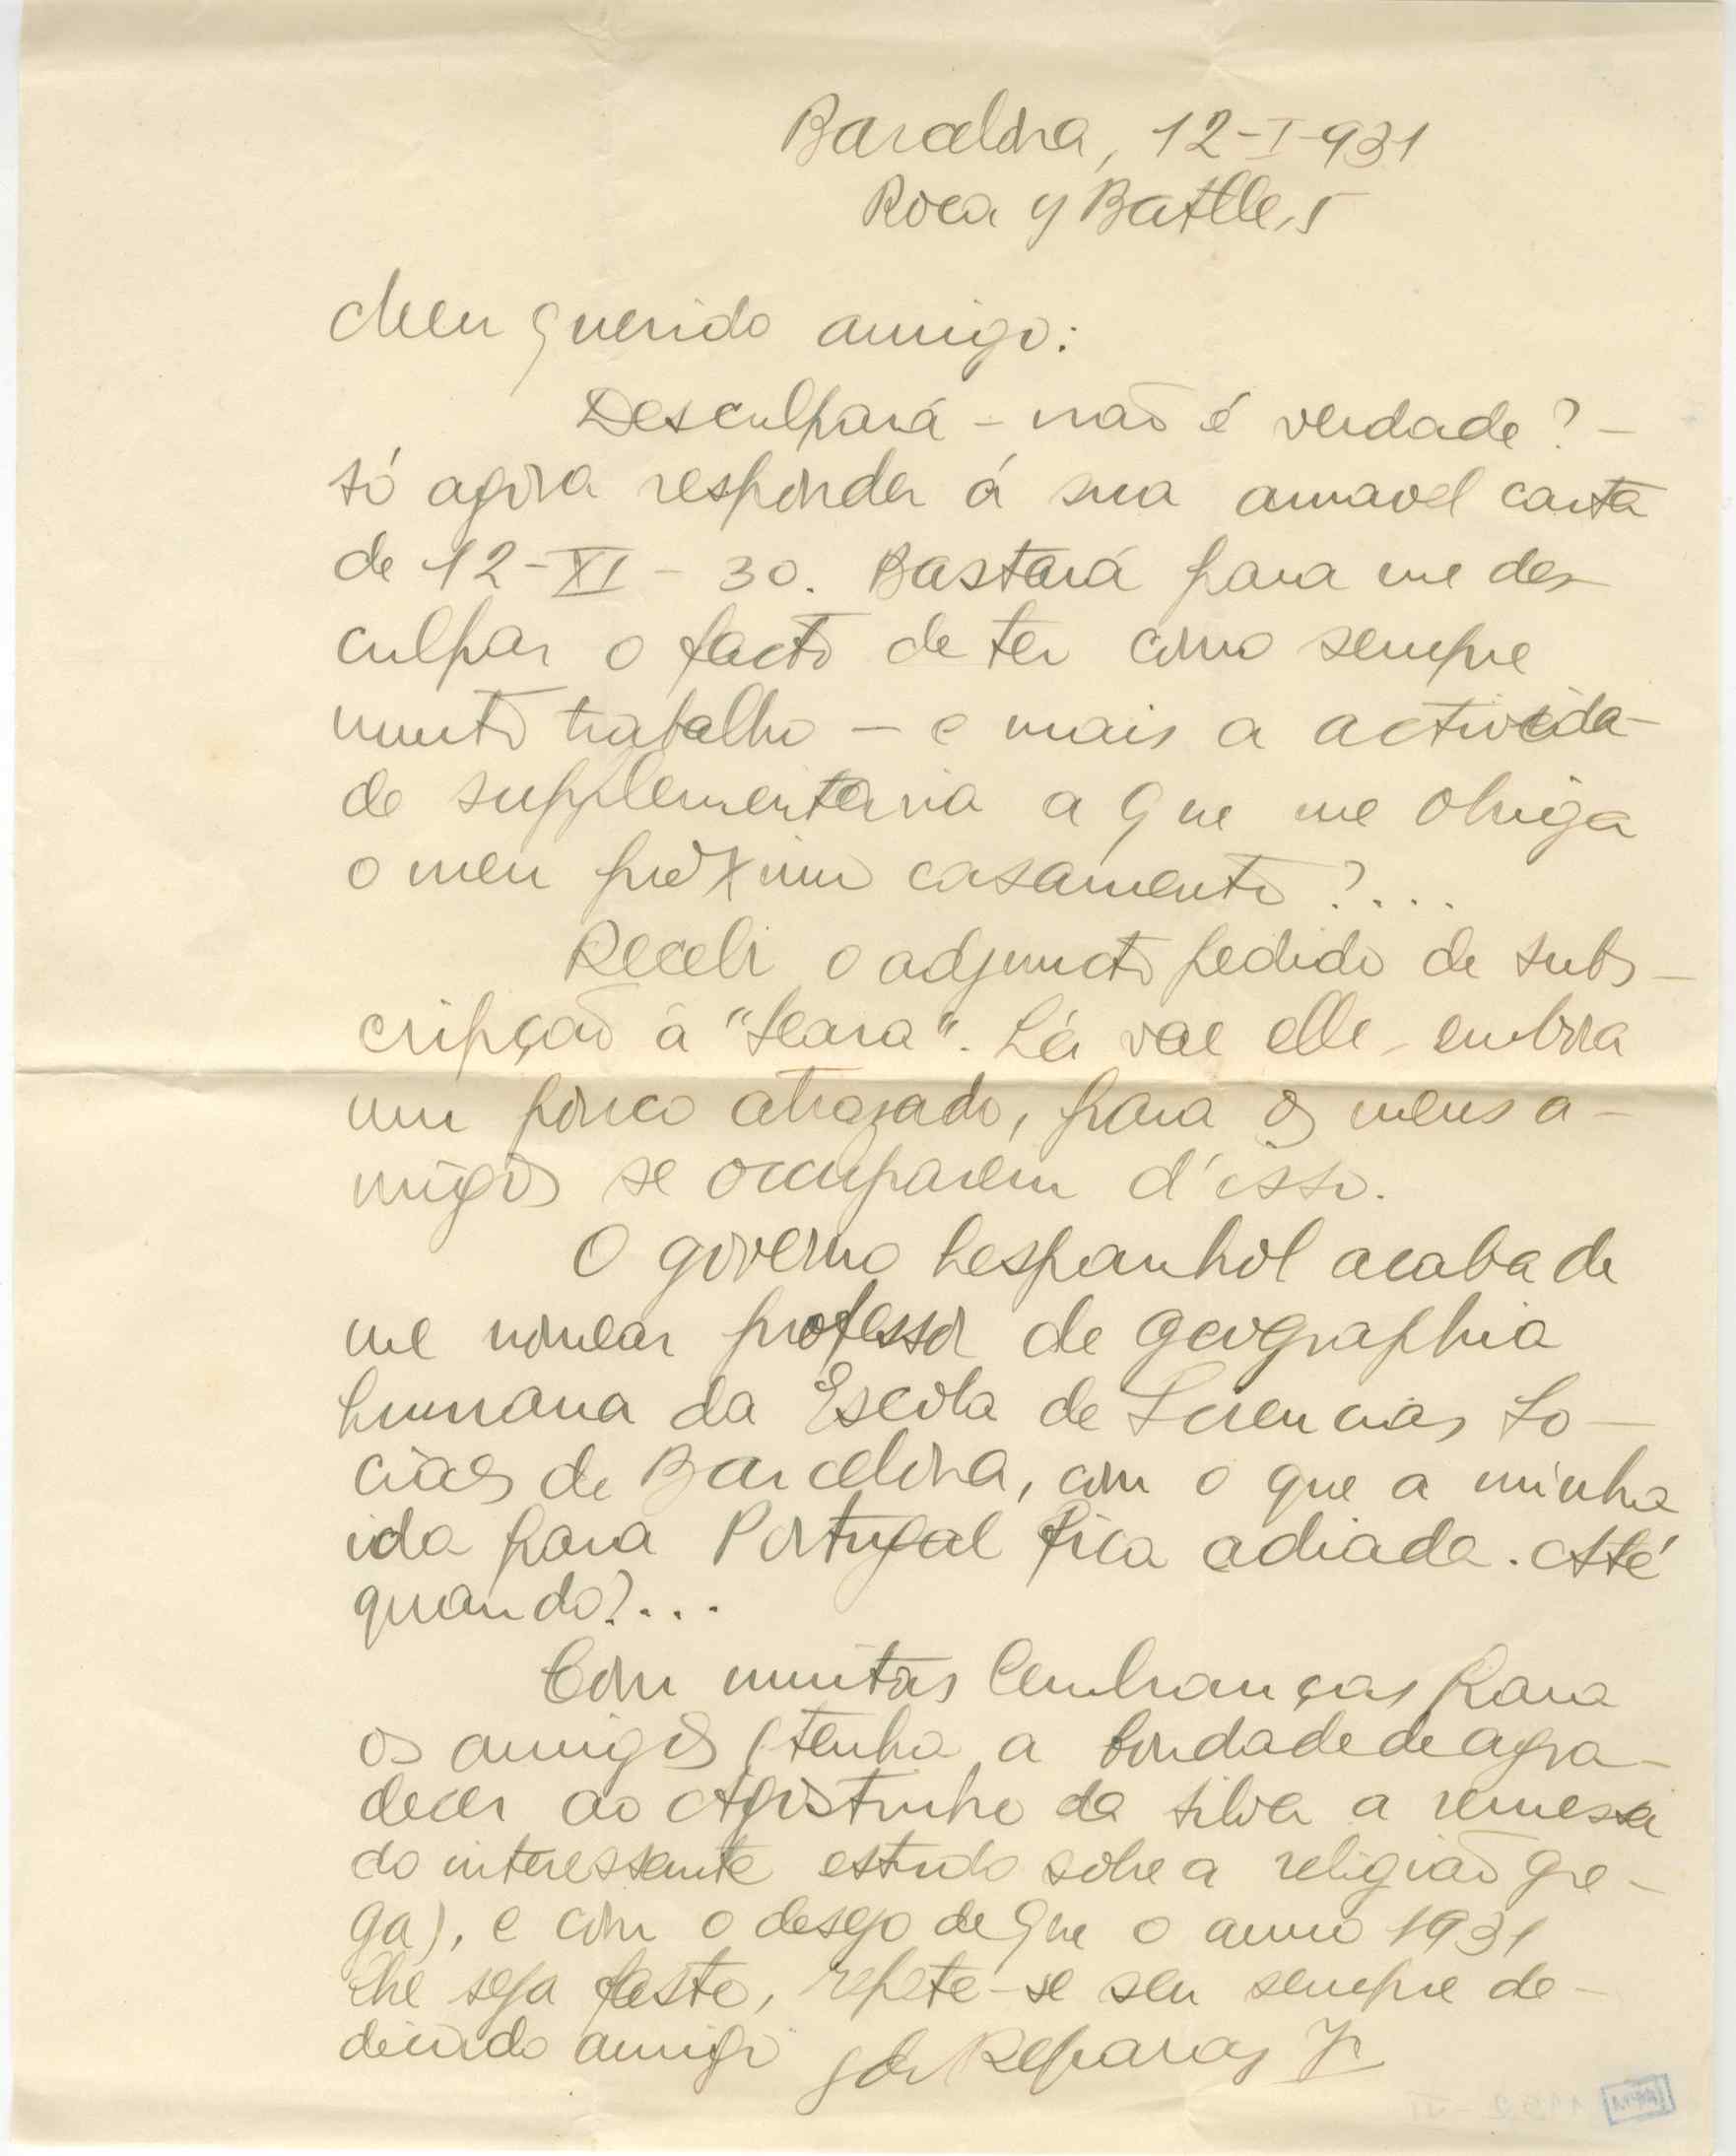 Barcelona, 12-I-931
Roca y Batlle, 5
Meu querido amigo:
Desculpará - não é verdade? -
só agora responder á sua amavel carta
de 12-XI-30. Bastará para me des
culpar o facto de ter como sempre
muito trabalho - e mais a activida-
de supplementaria a que me obriga
o meu próximo casamento?...
Recebi o adjuncto pedido de subs-
cripção á "Seara". Lá vae elle, embora
um pouco atrazado, para os meus a-
migos se occuparem d'isso.
O governo hespanhol acaba de
me nomear professor de geographia
humana da Escola de Sciencias So-
ciaes de Barcelona, com o que a minha
ida para Portugal fica adiada. Até
quando?...
Com muitas lembranças para
os amigos (tenha a bondade de agra-
decer ao Agostinho da Silva a remessa
do interessante estudo sobre a religião gre-
ga), e com o desejo de que o anno 1931
lhe seja fasto, repete-se seu sempre de-
dicado amigo G de Reparaz Jr